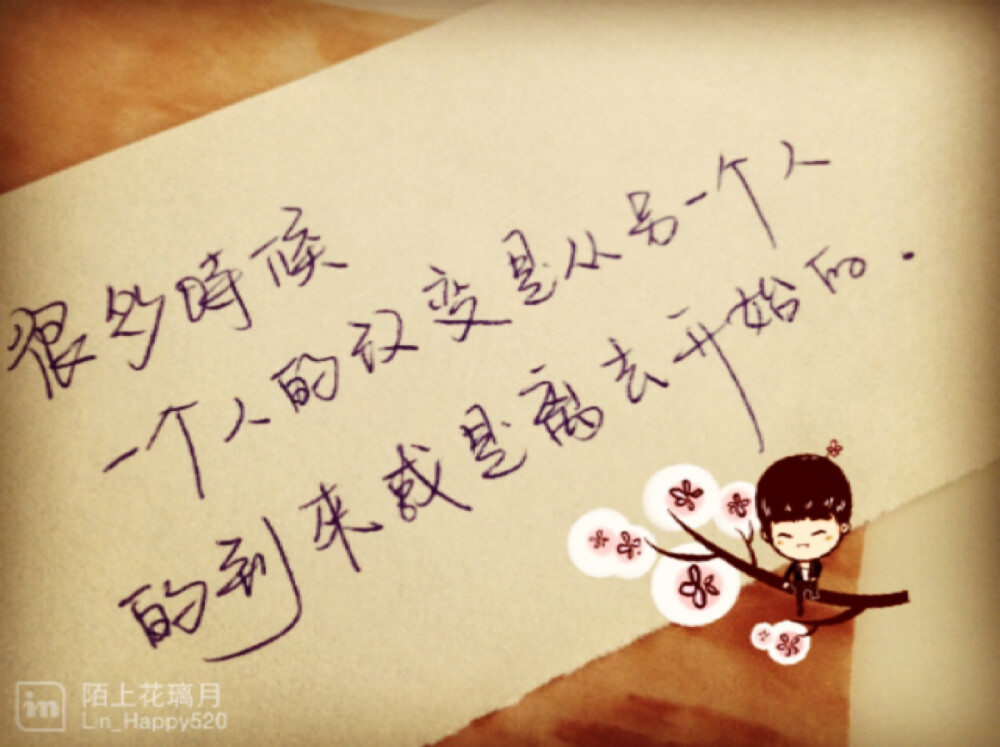 很多時候
一个人的改变是从另一个人
的到来或是离去开始的.
in 陌上花璃月
Lin_Happy520